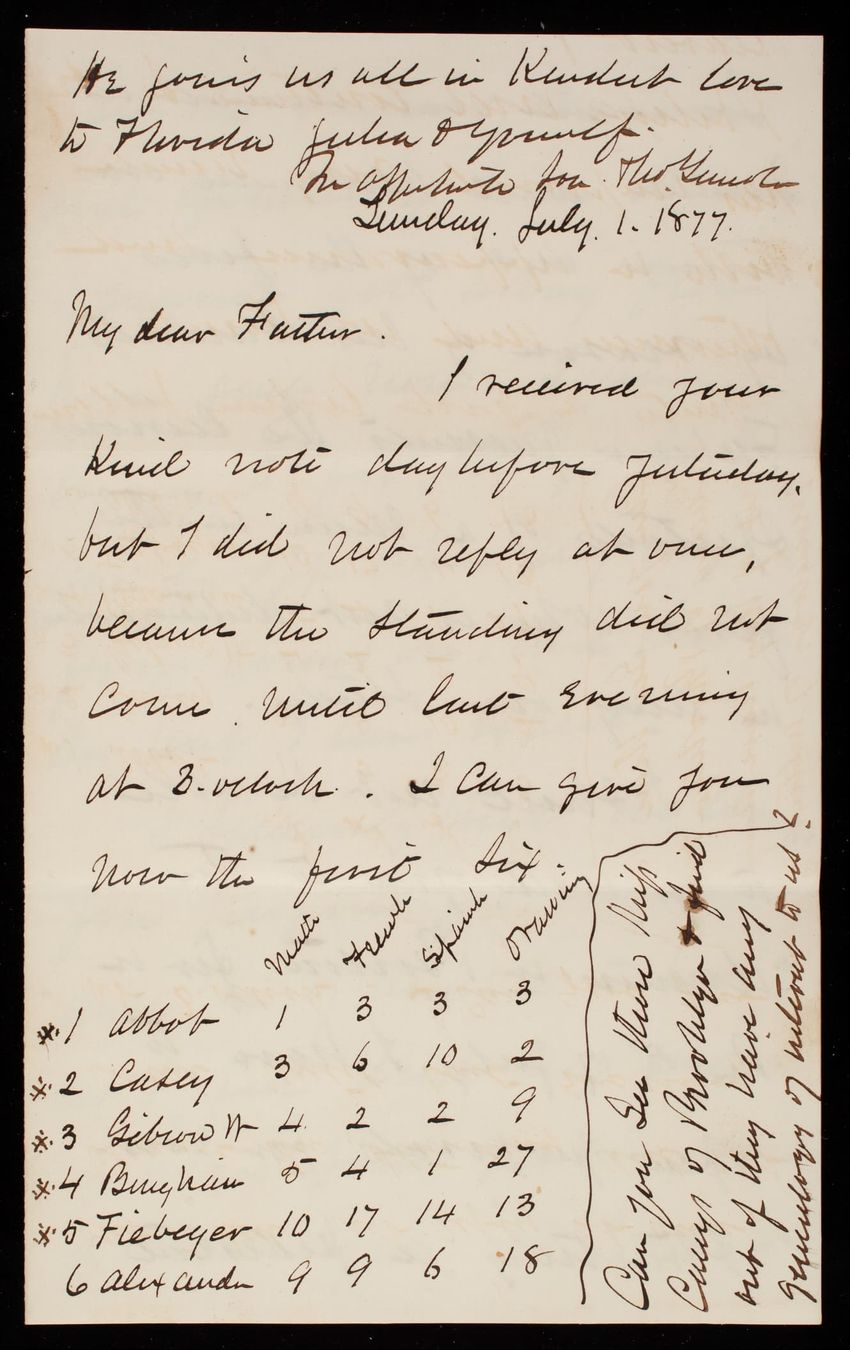 He joins us all in Kindest love
to Florida Julia & Yourself.
Yr affectionate son. Thos. Lincoln
Sunday. July. 1. 1877.
My dear Father.
I received your
Kind note day before yesterday.
but I did not reply at once,
because the standing did not
come until last evening
at 8. oclock. I can give you
now the first six.
Math French Spanish Drawing
*1 Abbot 1 3 3 3
*2 Casey 3 6 10 2
*3 Gibson W 4 2 2 9
*4 Bingham 5 4 1 27
*5 Fiebeger 10 17 14 13
6 Alexander 9 9 6 18
Can you see those
Caseys of Brooklyn & find
out if they have any
genealogy of interest to us?